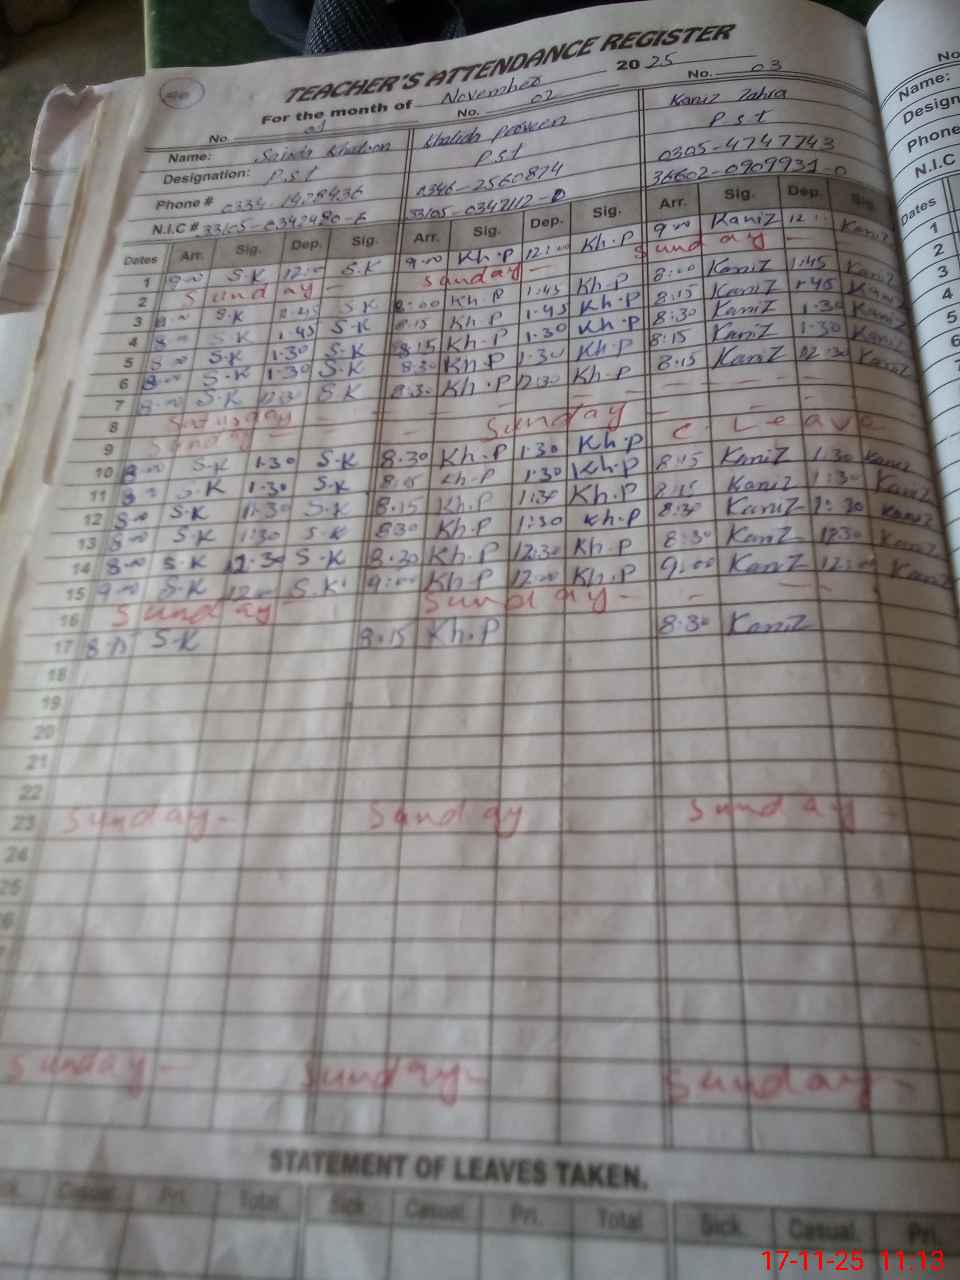 TEACHER'S ATTENDANCE REGISTER
For the month of November 2025
No. 01 No. 02 No. 03
Name: Khatoon Khalida Kaniz Zahra
Designation: P.S.T P.S.T P.S.T
Phone # 0346-2560874 0305-4747743
N.I.C # 36602-0909931-0
Dates Arr. Sig. Dep. Sig. Arr. Sig. Dep. Sig. Arr. Sig. Dep. Sig.
1 9:00 S.K 12:00 S.K 9:00 Kh.P 12:00 Kh.P 9:00 KaniZ 12: KaniZ
2 Sunday - Sunday - Sunday -
3 8:00 S.K S.K 8:00 Kh.P 1:45 Kh.P 8:00 KaniZ 1:45 KaniZ
4 8:00 S.K 1:45 S.K 8:15 Kh.P 1:45 Kh.P 8:15 KaniZ 1:45 KaniZ
5 8:00 S.K 1:30 S.K 8:15 Kh.P 1:30 Kh.P 8:30 KaniZ 1:30 KaniZ
6 8:00 S.K 1:30 S.K 8:30 Kh.P 1:30 Kh.P 8:15 KaniZ 1:30 KaniZ
7 8:00 S.K 12:30 S.K 8:30 Kh.P 12:30 Kh.P 8:15 KaniZ 12:30 KaniZ
8 - - - - - -
9 Sunday - - - Sunday - - -
10 8:00 S.K 1:30 S.K 8:30 Kh.P 1:30 Kh.P C. Leave
11 8:00 S.K 1:30 S.K 8:15 Kh.P 1:30 Kh.P 8:15 KaniZ 1:30 KaniZ
12 8:00 S.K 1:30 S.K 8:15 Kh.P 1:30 Kh.P 8:15 KaniZ 1:30 KaniZ
13 8:00 S.K 1:30 S.K 8:30 Kh.P 1:30 Kh.P 8:30 KaniZ 1:30 KaniZ
14 8:00 S.K 12:30 S.K 8:30 Kh.P 12:30 Kh.P 8:30 KaniZ 12:30 KaniZ
15 9:00 S.K 12:00 S.K 9:00 Kh.P 12:00 Kh.P 9:00 KaniZ 12:00 KaniZ
16 Sunday Sunday - - - -
17 8:15 S.K 8:15 Kh.P 8:30 KaniZ
18
19
20
21
22
23 Sunday - Sunday Sunday -
24
25
Sunday - Sunday - Sunday -
STATEMENT OF LEAVES TAKEN.
Casual Pri. Total Sick Casual Pri. Total Sick Casual Pri.
No
Name:
Design
Phone
N.I.C
Dates
1
2
3
4
5
6
7
17-11-25 11:13